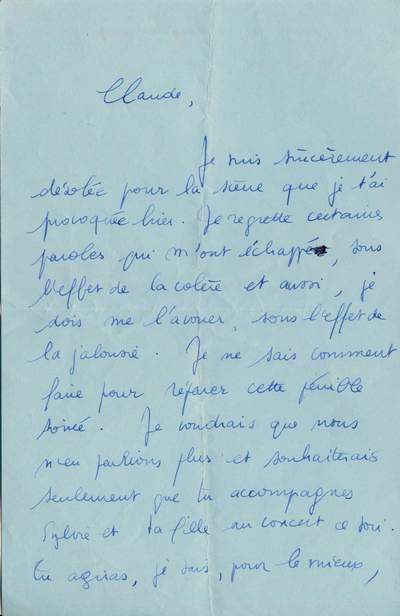 Claude,
Je suis sincèrement
désolée pour la scène que je t'ai
provoquée hier. Je regrette certaines
paroles qui m'ont échappé, sous
l'effet de la colère et aussi, je
dois me l'avouer, sous l'effet de
la jalousie. Je ne sais comment
faire pour réparer cette pénible
soirée. Je voudrais que nous
n'en parlions plus et souhaiterais
seulement que tu accompagnes
Sylvie et ta fille au concert ce soir.
Tu agiras, je sais, pour le mieux,